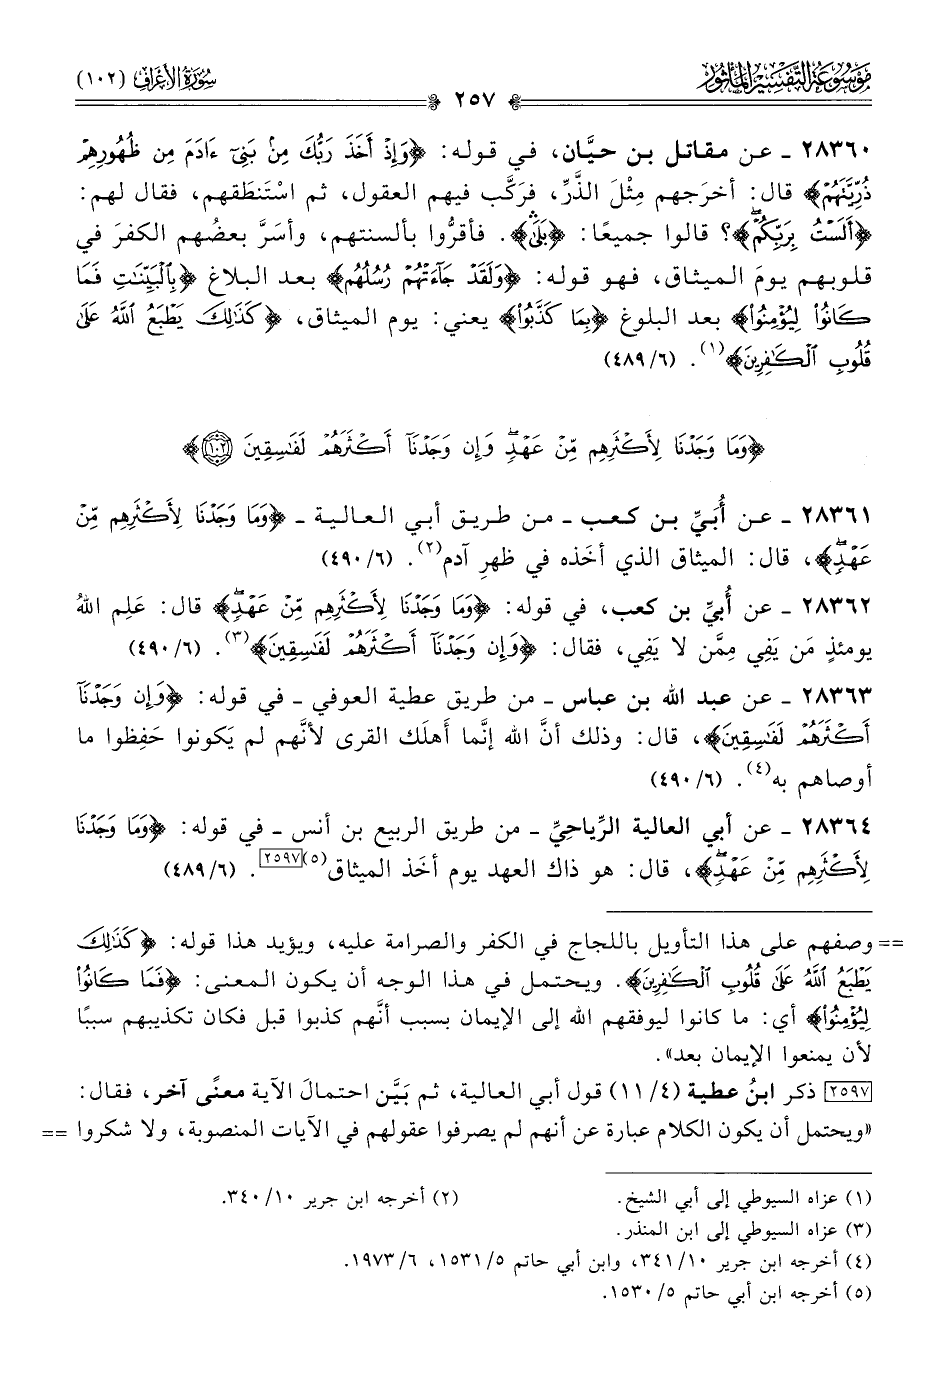 موسوعة التفسير المأثور
سورة الأعراف (١٠٢)
٢٥٧
٢٨٣٦٠ ـ عن مقاتل بن حيَّان، في قوله: ﴿وَإِذْ أَخَذَ رَبُّكَ مِنۢ بَنِىٓ ءَادَمَ مِن ظُهُورِهِمْ
ذُرِّيَّتَهُمْ﴾ قال: أخرَجهم مِثْلَ الذَّرِّ، فرَكَّب فيهم العقول، ثم اسْتَنطَقهم، فقال لهم:
﴿أَلَسْتُ بِرَبِّكُمْۖ﴾؟ قالوا جميعًا: ﴿بَلَىٰۛ﴾. فأقرُّوا بألسنتهم، وأسَرَّ بعضُهم الكفرَ في
قلوبهم يومَ الميثاق، فهو قوله: ﴿وَلَقَدْ جَآءَتْهُمْ رُسُلُهُم﴾ بعد البلاغ ﴿بِٱلْبَيِّنَٰتِ فَمَا
كَانُوا۟ لِيُؤْمِنُوا۟﴾ بعد البلوغ ﴿بِمَا كَذَّبُوا۟﴾ يعني: يوم الميثاق، ﴿كَذَٰلِكَ يَطْبَعُ ٱللَّهُ عَلَىٰ
قُلُوبِ ٱلْكَٰفِرِينَ﴾(١). (٤٨٩/٦)
﴿وَمَا وَجَدْنَا لِأَكْثَرِهِم مِّنْ عَهْدٍۖ وَإِن وَجَدْنَآ أَكْثَرَهُمْ لَفَٰسِقِينَ ١٠٢﴾
٢٨٣٦١ ـ عن أُبَيِّ بن كعب ـ من طريق أبي العالية ـ ﴿وَمَا وَجَدْنَا لِأَكْثَرِهِم مِّنْ
عَهْدٍۖ﴾، قال: الميثاق الذي أخَذه في ظهرِ آدم(٢). (٤٩٠/٦)
٢٨٣٦٢ ـ عن أُبيِّ بن كعب، في قوله: ﴿وَمَا وَجَدْنَا لِأَكْثَرِهِم مِّنْ عَهْدٍۖ﴾ قال: عَلِم اللهُ
يومئذٍ مَن يَفِي مِمَّن لا يَفِي، فقال: ﴿وَإِن وَجَدْنَآ أَكْثَرَهُمْ لَفَٰسِقِينَ﴾(٣). (٤٩٠/٦)
٢٨٣٦٣ ـ عن عبد الله بن عباس ـ من طريق عطية العوفي ـ في قوله: ﴿وَإِن وَجَدْنَآ
أَكْثَرَهُمْ لَفَٰسِقِينَ﴾، قال: وذلك أنَّ الله إنَّما أهلَك القرى لأنَّهم لم يَكونوا حَفِظوا ما
أوصاهم به(٤). (٤٩٠/٦)
٢٨٣٦٤ ـ عن أبي العالية الرِّياحِيِّ ـ من طريق الربيع بن أنس ـ في قوله: ﴿وَمَا وَجَدْنَا
لِأَكْثَرِهِم مِّنْ عَهْدٍۖ﴾، قال: هو ذاك العهد يوم أخَذ الميثاق(٥)[٢٥٩٧]. (٤٨٩/٦)
== وصفهم على هذا التأويل باللجاج في الكفر والصرامة عليه، ويؤيد هذا قوله: ﴿كَذَٰلِكَ
يَطْبَعُ ٱللَّهُ عَلَىٰ قُلُوبِ ٱلْكَٰفِرِينَ﴾. ويحتمل في هذا الوجه أن يكون المعنى: ﴿فَمَا كَانُوا۟
لِيُؤْمِنُوا۟﴾ أي: ما كانوا ليوفقهم الله إلى الإيمان بسبب أنَّهم كذبوا قبل فكان تكذيبهم سببًا
لأن يمنعوا الإيمان بعد».
[٢٥٩٧] ذكر ابنُ عطية (٤/ ١١) قول أبي العالية، ثم بَيَّن احتمالَ الآية معنًى آخر، فقال:
«ويحتمل أن يكون الكلام عبارة عن أنهم لم يصرفوا عقولهم في الآيات المنصوبة، ولا شكروا ==
(١) عزاه السيوطي إلى أبي الشيخ. (٢) أخرجه ابن جرير ١٠/ ٣٤٠.
(٣) عزاه السيوطي إلى ابن المنذر.
(٤) أخرجه ابن جرير ١٠/ ٣٤١، وابن أبي حاتم ٥/ ١٥٣١، ٦/ ١٩٧٣.
(٥) أخرجه ابن أبي حاتم ٥/ ١٥٣٠.